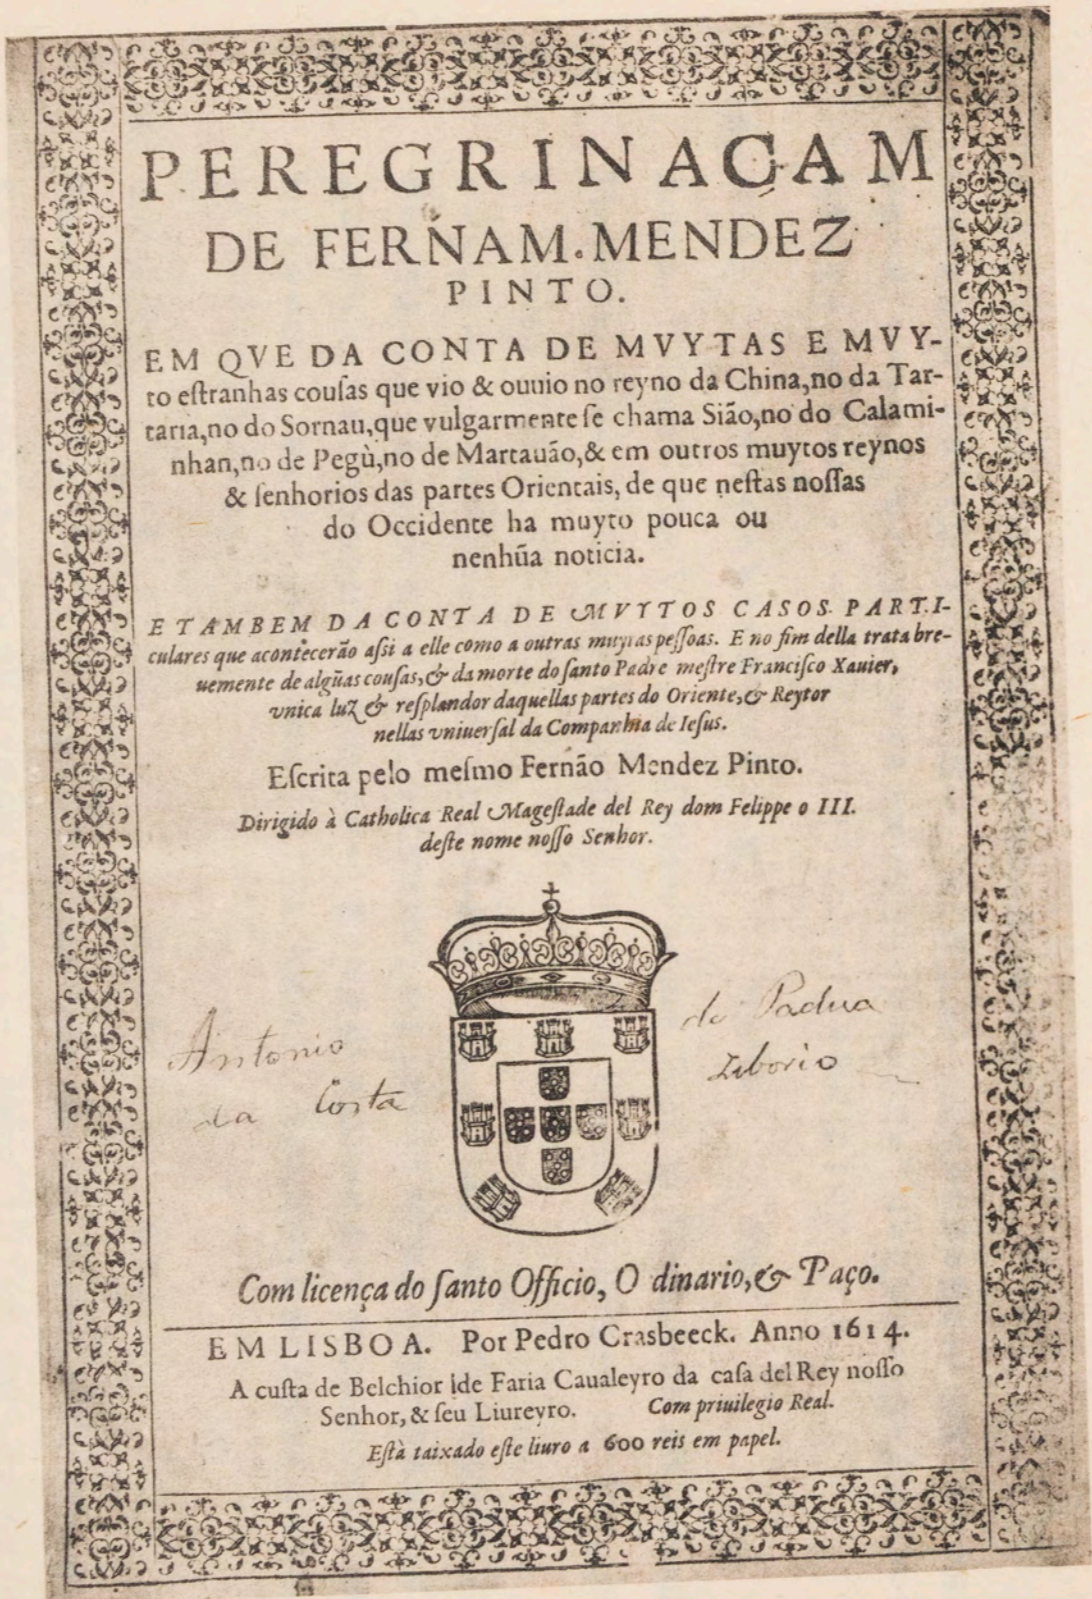 PEREGRINAÇAM
DE FERNAM. MENDEZ
PINTO.
EM QVE DA CONTA DE MVYTAS E MVY-
to eſtranhas couſas que vio & ouuio no reyno da China, no da Tar-
taria, no do Sornau, que vulgarmente ſe chama Sião, no do Calami-
nhan, no de Pegù, no de Martauão, & em outros muytos reynos
& ſenhorios das partes Orientais, de que neſtas noſſas
do Occidente ha muyto pouca ou
nenhũa noticia.
E TAMBEM DA CONTA DE MVYTOS CASOS PARTI-
culares que acontecerão aſsi a elle como a outras muytas peſſoas. E no fim della trata bre-
uemente de algũas couſas, & da morte do ſanto Padre meſtre Franciſco Xauier,
vnica luz & reſplandor daquellas partes do Oriente, & Reytor
nellas vniuerſal da Companhia de Ieſus.
Eſcrita pelo meſmo Fernão Mendez Pinto.
Dirigido à Catholica Real Mageſtade del Rey dom Felippe o III.
deſte nome noſſo Senhor.
Antonio de Padua
da Costa Liborio
Com licença do ſanto Officio, O dinario, & Paço.
EM LISBOA. Por Pedro Crasbeeck. Anno 1614.
A cuſta de Belchior de Faria Caualeyro da caſa del Rey noſſo
Senhor, & ſeu Liureyro. Com priuilegio Real.
Eſtà taixado eſte liuro a 600 reis em papel.